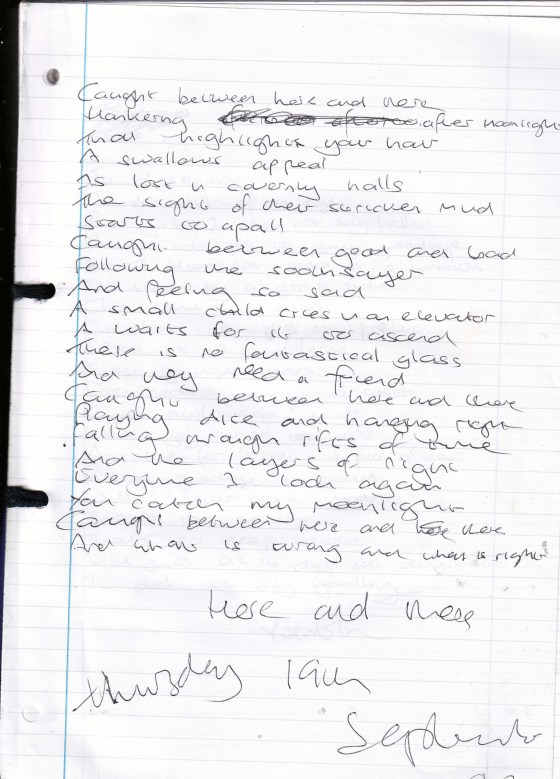 Caught between here and there
Hankering after moonlight
That highlights your hair
A swallows appeal
Is lost in caverny halls
The sight of their stricken mud
Starts to apall
Caught between good and bad
Following the soothsayer
And feeling so sad
A small child cries in an elevator
A waits for it to ascend
There is no fantastical glass
And they need a friend
Caught between here and there
Playing dice and hanging right
Falling through rifts of time
And the layers of night
Everytime I look again
You catch my moonlight
Caught between here and there
And what is wrong and what is right
Here and there
Thursday 19th